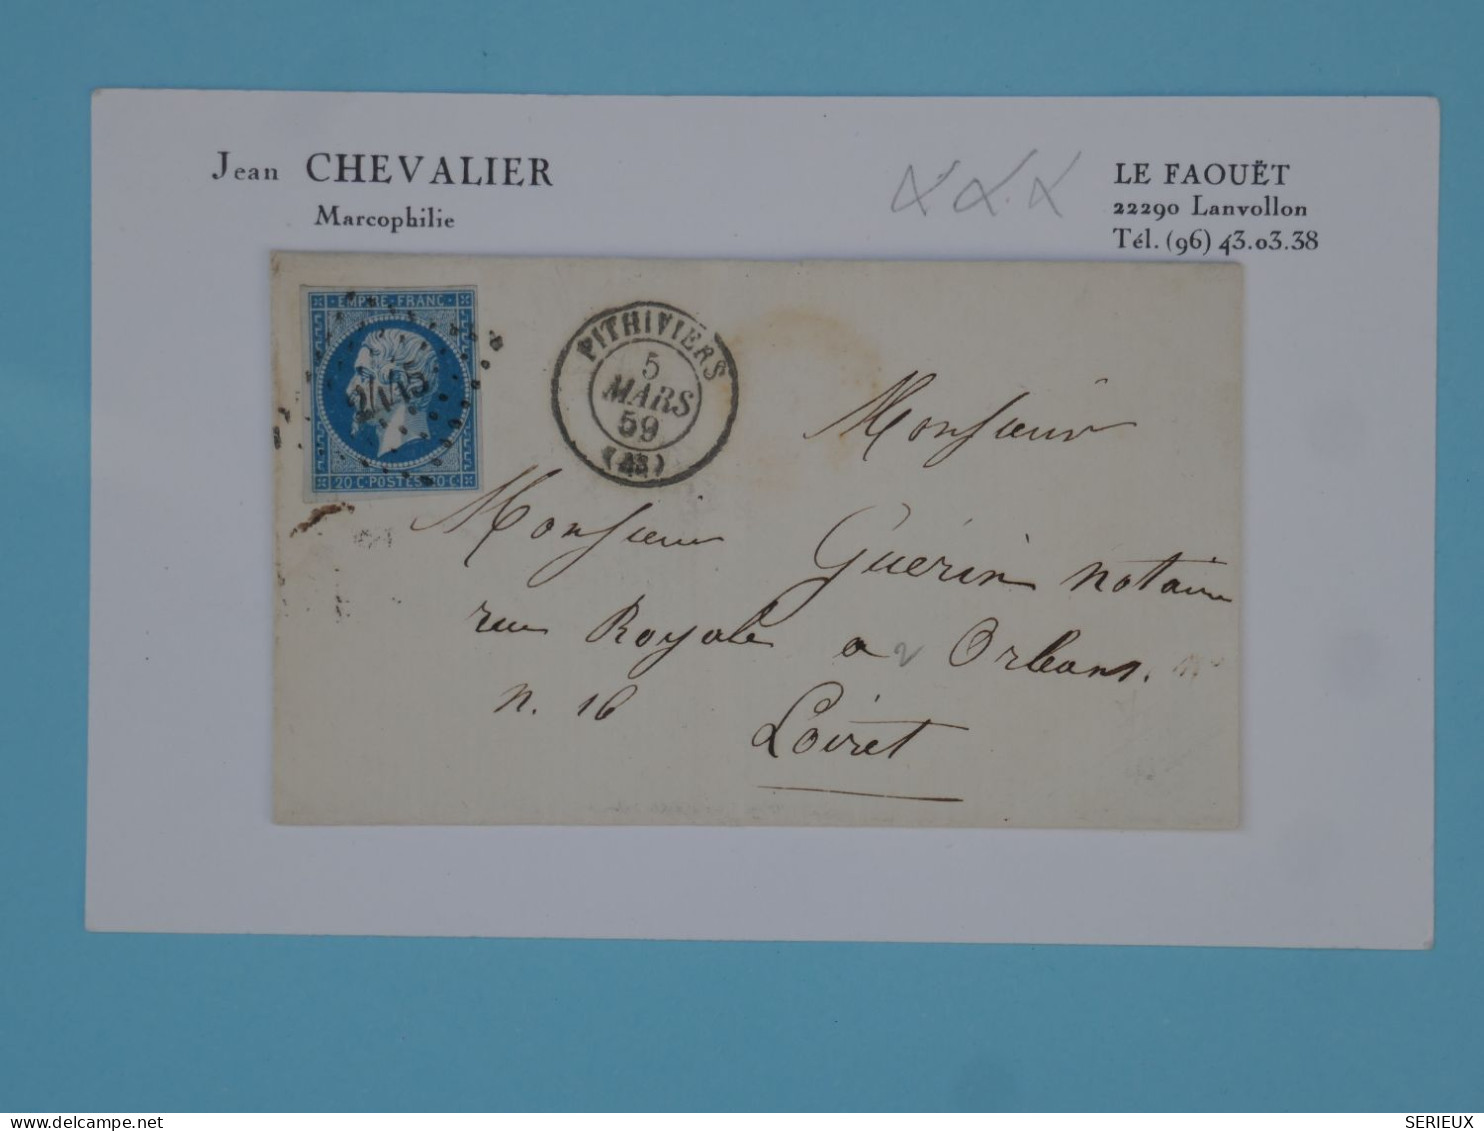 Jean CHEVALIER
Marcophilie
LE FAOUËT
22290 Lanvollon
Tél. (96) 43.03.38
EMPIRE FRANC
2445
20 C POSTES 20 C
PITHIVIERS
5
MARS
59
(43)
Monsieur
Monsieur Guérin notaire
rue Royale a Orleans.
n. 16
Loiret
SERIEUX